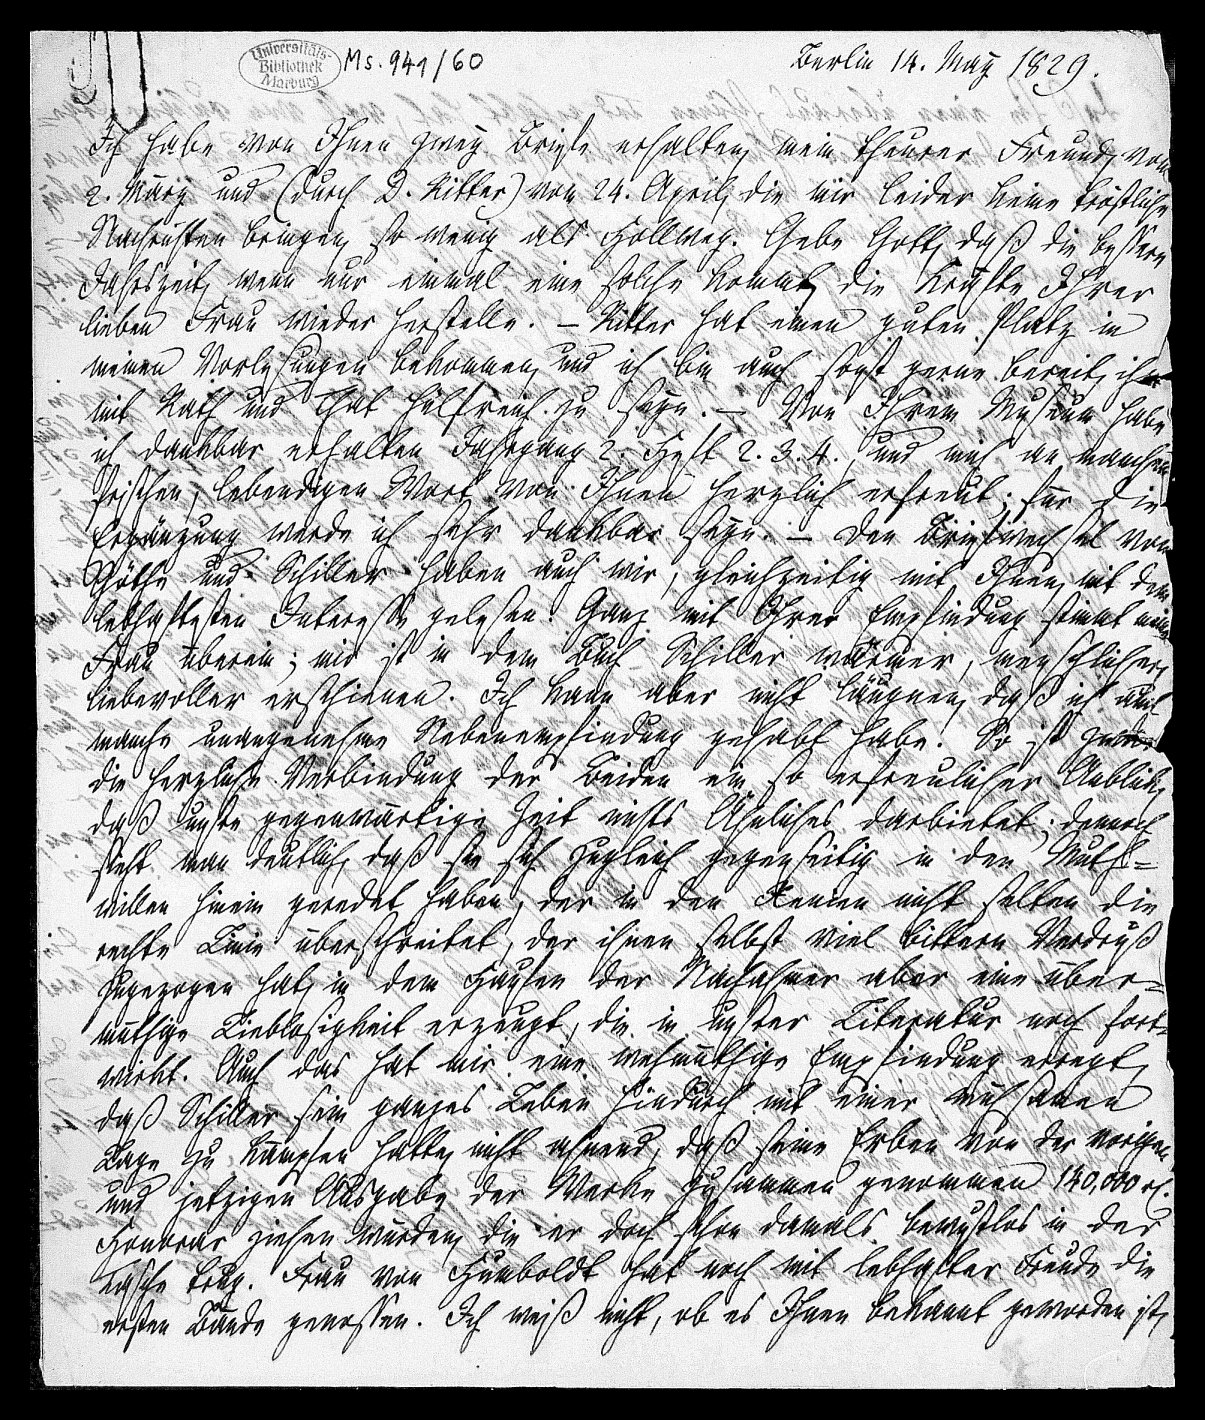 Universitäts-
Bibliothek
Marburg
Ms. 941/60
Berlin 14. May 1829.
Ich habe von Ihnen zwey Briefe erhalten, mein theurer Freund, vom
2. März und (durch D. Ritter) vom 24. April, die mir leider keine tröstliche
Nachrichten bringen, so wenig als Hollweg. Gebe Gott, daß die bessere
Jahrszeit, wenn nur einmal eine solche kommt, die Kräfte Ihrer
lieben Frau wieder herstelle. – Ritter hat einen guten Platz in
meinen Vorlesungen bekommen, und ich bin auch sonst gerne bereit, ihm
mit Rath und That hülfreich zu seyn. – Von Ihrem Museum habe
ich dankbar erhalten Jahrgang 2. Heft 2. 3. 4., und mich an manchem
frischen, lebendigen Wort von Ihnen herzlich erfreut; für die
Ergänzung werde ich sehr dankbar seyn. – Den Briefwechsel von
Göthe und Schiller haben auch wir, gleichzeitig mit Ihnen, mit dem
lebhaftesten Interesse gelesen. Ganz mit Ihrer Empfindung stimmt meine
Frau überein; mir ist in dem Buch Schiller wärmer, menschlicher,
liebevoller erschienen. Ich kann aber nicht läugnen, daß ich auch
manche unangenehme Nebenempfindung gehabt habe. So ist zwar
die herzliche Verbindung der Beiden ein so erfreulicher Anblick,
daß unsre gegenwärtige Zeit nichts Ähnliches darbietet; dennoch
sieht man deutlich, daß sie sich zugleich gegenseitig in den Muth-
willen hinein geredet haben, der in den Xenien nicht selten die
rechte Linie überschreitet, der ihnen selbst viel bittern Verdruß
zugezogen hat, in dem Haufen der Nachahmer aber eine über-
müthige Lieblosigkeit erzeugt, die in unsrer Literatur noch fort-
wirkt. Auch das hat mir eine wehmüthige Empfindung erregt,
daß Schiller sein ganzes Leben hindurch mit einer mühsamen
Lage zu kämpfen hatte, nicht ahnend, daß seine Erben von der vorigen
und jetzigen Ausgabe der Werke zusammen genommen 140,000 rl.
Honorar ziehen würden, die er doch schon damals bewußtlos in der
Tasche trug. Frau von Humboldt hat noch mit lebhafter Freude die
ersten Bände genossen. Ich weiß nicht, ob es Ihnen bekannt geworden ist,